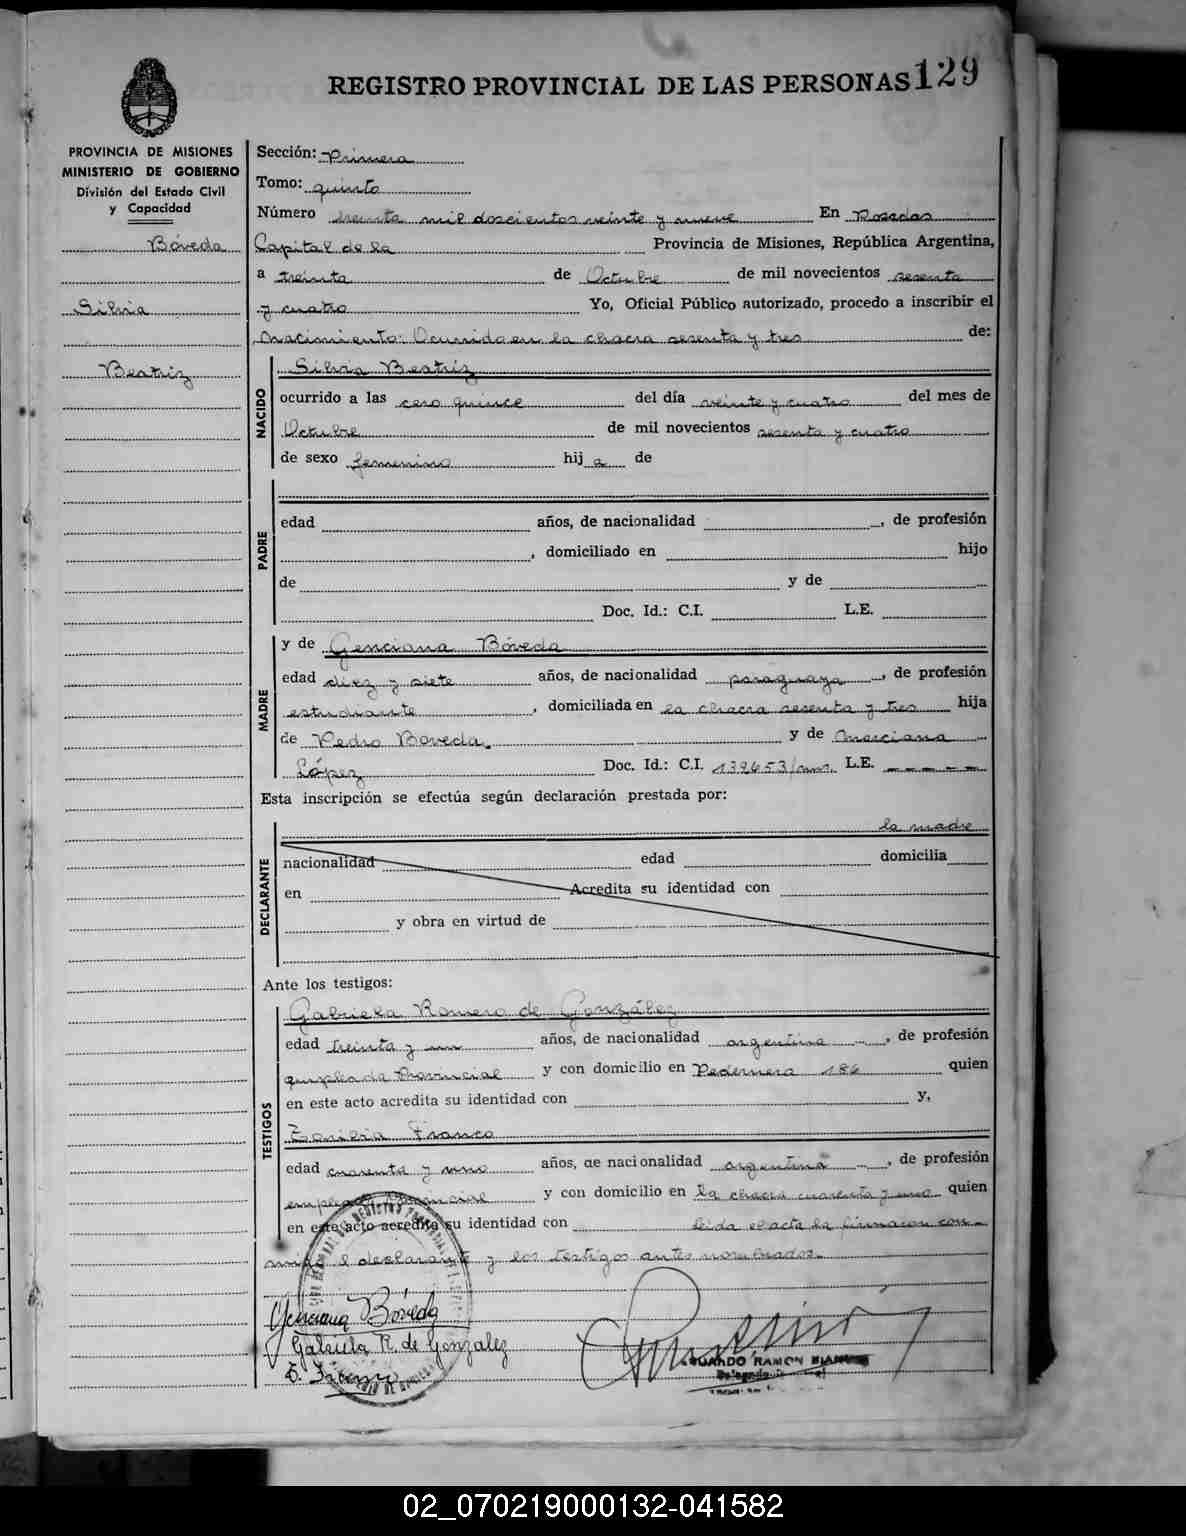 REGISTRO PROVINCIAL DE LAS PERSONAS 129
PROVINCIA DE MISIONES
MINISTERIO DE GOBIERNO
División del Estado Civil
y Capacidad
Bóveda
Silvia
Beatriz
Sección: Primera
Tomo: quinto
Número treinta mil doscientos veinte y nueve En Posadas
Capital de la Provincia de Misiones, República Argentina,
a treinta de Octubre de mil novecientos sesenta
y cuatro Yo, Oficial Público autorizado, procedo a inscribir el
Nacimiento: Ocurrido en la chacra sesenta y tres de:
NACIDO
Silvia Beatriz
ocurrido a las cero quince del día veinte y cuatro del mes de
Octubre de mil novecientos sesenta y cuatro
de sexo femenino hij a de
PADRE
edad años, de nacionalidad , de profesión
, domiciliado en hijo
de y de
Doc. Id.: C.I. L.E.
MADRE
y de Genciana Bóveda
edad diez y siete años, de nacionalidad paraguaya , de profesión
estudiante , domiciliada en la chacra sesenta y tres hija
de Pedro Bóveda. y de Marciana
López Doc. Id.: C.I. 139653/mnes. L.E. – – – – –
Esta inscripción se efectúa según declaración prestada por:
DECLARANTE
la madre
nacionalidad edad domicilia
en Acredita su identidad con
y obra en virtud de
Ante los testigos:
TESTIGOS
Gabriela Romero de González
edad treinta y un años, de nacionalidad argentina , de profesión
empleada Provincial y con domicilio en Pedernera 186 quien
en este acto acredita su identidad con y,
Franco
edad cuarenta y uno años, de nacionalidad argentina , de profesión
empleada Provincial y con domicilio en la chacra cuarenta y uno quien
en este acto acredita su identidad con leida el acta la firmaron con
migo el declarante y los testigos antes nombrados.
Genciana Bóveda
Gabriela R. de Gonzalez
RAMON
02_070219000132-041582